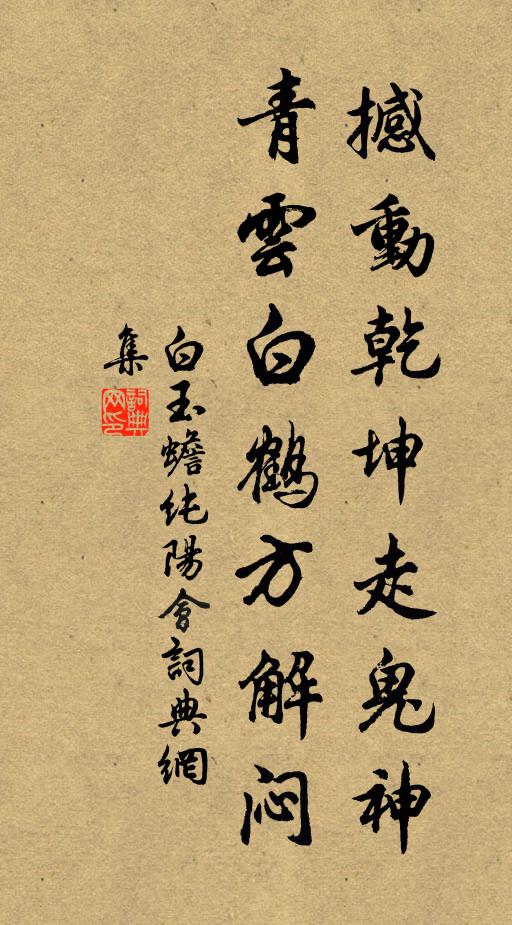 撼動乾坤走鬼神
青雲白鶴方解闷
白玉蟾純陽會詞典網
集
詞典
网印